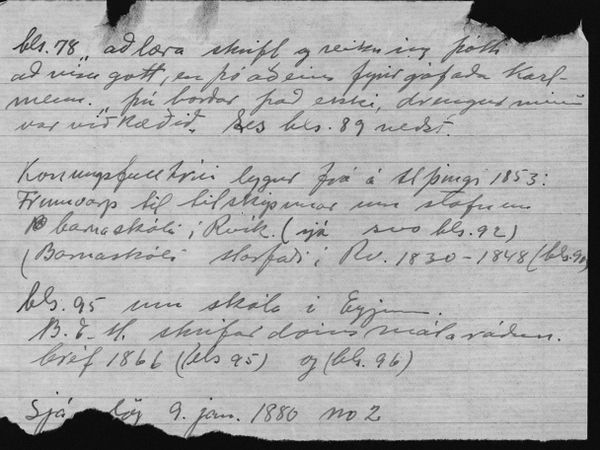 bls. 78 „að læra skrift og reikning þótti
að vísu gott, en þó aðeins fyrir gáfaða karl-
menn. „þú borðar það ekki, drengur minn
var viðkvæðið. Les bls. 89 neðst.
Konungsfulltrúi leggur frá á Alþingi 1853:
Frumvarp til tilskipunar um stofnun
barnaskóla í Rvík. (sjá svo bls. 92)
(Barnaskóli starfaði í Rv. 1830-1848 (bls. 90)
bls. 95 um skóla í Eyjum.
skrifar dómsmálaráðun.
bréf 1866 (bls 95) og (bls. 96)
Sjá lög 9. jan. 1880 no 2